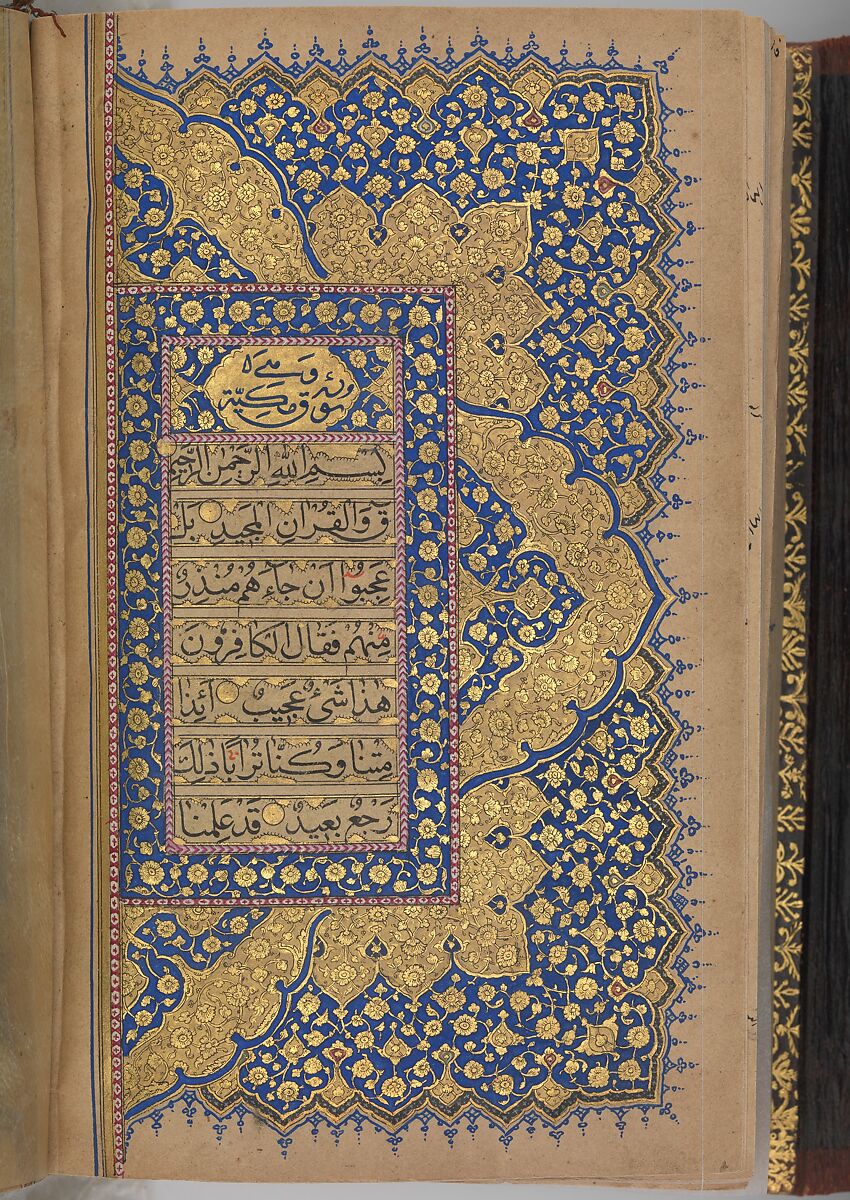 سورة ق مكيّة
بِسْمِ اللهِ الرَّحْمنِ الرَّحِيمِ
ق وَالْقُرانِ الْمَجِيدِ بَلْ
عَجِبُوا اَنْ جَاءَهُمْ مُنْذِرٌ
مِنْهُمْ فَقَالَ الْكَافِرُونَ
هذَا شَيْءٌ عَجِيبٌ اَئِذَا
مِتْنَا وَكُنَّا تُرَابًا ذلِكَ
رَجْعٌ بَعِيدٌ قَدْ عَلِمْنَا